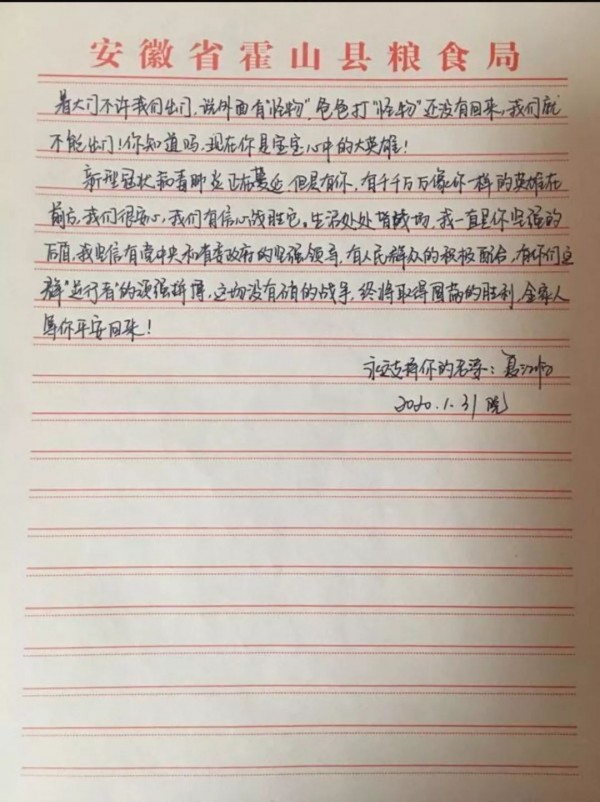 安徽省霍山县粮食局
着大门不许我们出门，说外面有"怪物"，爸爸打"怪物"还没有回来，我们就
不能出门！你知道吗，现在你是宝宝心中的大英雄！
新型冠状病毒肺炎正在蔓延，但是有你，有千千万万像你一样的英雄在
前方，我们很安心，我们有信心战胜它。生活处处皆战场，我一直是你坚强的
后盾，我坚信有党中央和省委政府的坚强领导，有人民群众的积极配合，有你们这
群"逆行者"的顽强拼搏，这场没有硝的战争，终将取得圆满的胜利，全家人
等你平安回来！
永远支持你的老婆：夏
2020.1.31 晚